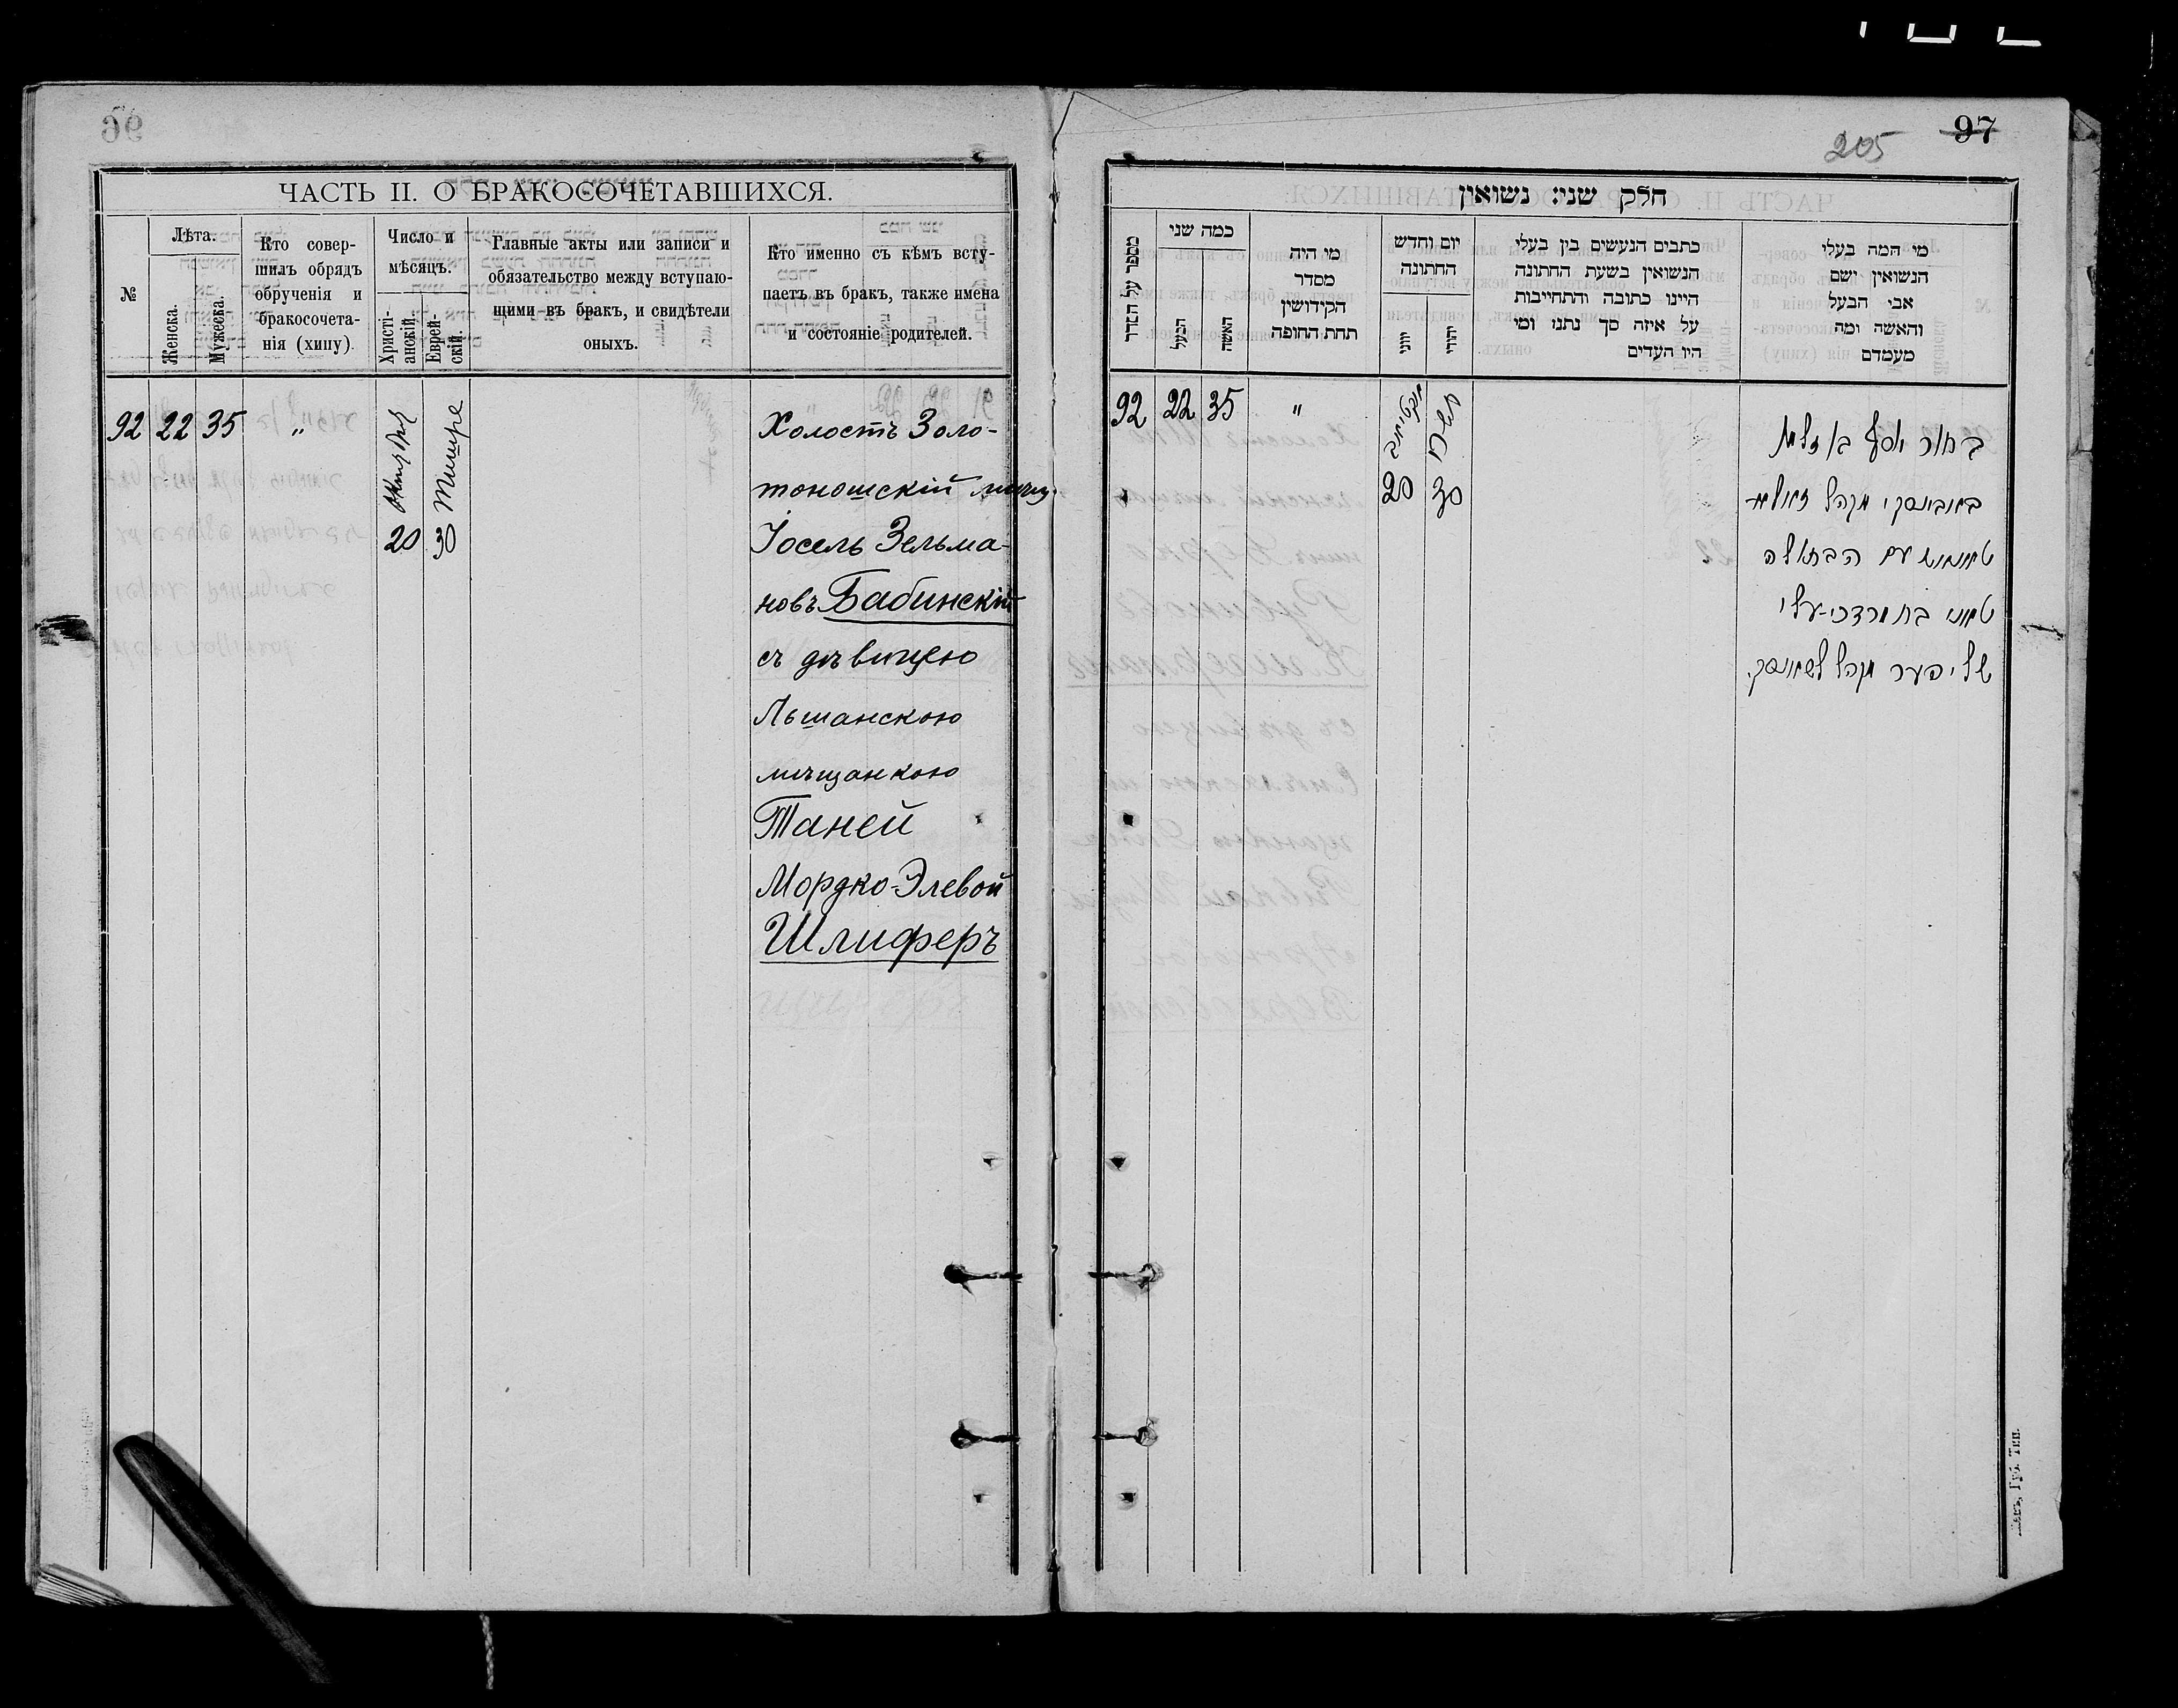 96
ЧАСТЬ II. О БРАКОСОЧЕТАВШИХСЯ.
№
Лѣта.
Женска.
Мужеска.
Кто совер-
шилъ обрядъ
обрученія и
бракосочета-
нія (хипу).
Число и
мѣсяцъ.
Христі-
анскій.
Еврей-
скій.
Главные акты или записи и
обязательство между вступаю-
щими въ бракъ, и свидѣтели
оныхъ.
Кто именно съ кѣмъ всту-
паетъ въ бракъ, также имена
и состояніе родителей.
92 22 35 "
Октября
20
Тишре
30
Холостъ Золо-
тоношскій мѣщ.
Іосель Зельма-
новъ Бабинскій
съ дѣвицею
Льшанскою
мѣщанкою
Таней
Мордко-Элевой
Шлиферъ
205
97
חלק שני: נשואין
מספר על הסדר
כמה שני
הבעל
האשה
מי היה
מסדר
הקידושין
תחת החופה
יום וחדש
החתונה
יווני
יהודי
כתבים הנעשים בין בעלי
הנשואין בשעת החתונה
היינו כתובה והתחייבות
על איזה סך נתנו ומי
היו העדים
מי המה בעלי
הנשואין ושם
אבי הבעל
והאשה ומה
מעמדם
92 22 35 "
20
תשרי
30
בחור יוסף בן זלמן
באבינסקי מקהל
עם הבתולה
טאני בת מרדכי-עלי
שליפער מקהל
Губ. Тип.